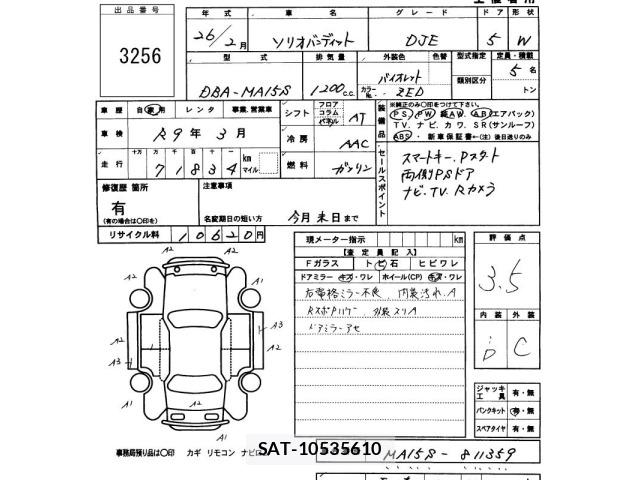 出品番号
3256
年式 車名 グレード ドア 形状
26/2月 ソリオバンディット DJE 5 W
型式 排気量 外装色 色替 型式指定 定員・積載
DBA-MA15S 1200 C.C. バイオレット 類別区分 5名
カラーNo. ZED トン
車歴 自家用 レンタ 事業、営業車
車検 R9年3月
走行 十万 万 千 百 十 km マイル
71834
シフト フロア コラム パネル AT
冷房 AAC
燃料 ガソリン
装備品
※純正のみ○印をつけて下さい。
PS PW 純AW、AB(エアバック)
TV、ナビ、カワ、SR(サンルーフ)
ABS・新車保証書←(注)後日送りのみ
セールスポイント
スマートキー、Pスタート
両側PSドア
ナビ、TV、Rカメラ
修復歴 箇所
有
(有の場合は○印を)
注意事項
名変期日の短い方 今月末日まで
リサイクル料 10620円
現メーター指示 km
【査定員記入】
Fガラス トビ石 ヒビワレ
ドアミラー キズ・ワレ ホイール(CP) キズ・ワレ
右電格ミラー不良、内装汚れ、A
ドアミラーアセ
評価点
3.5
内装 外装
D C
ジャッキ 工具 有・無
パンクキット 有・無
スペアタイヤ 有・無
A1 A2 A2 A3 A2 A2 A3 A1 A1
事務局預り品は○印 カギ リモコン ナビロム
SAT-10535610
MA15S-811359